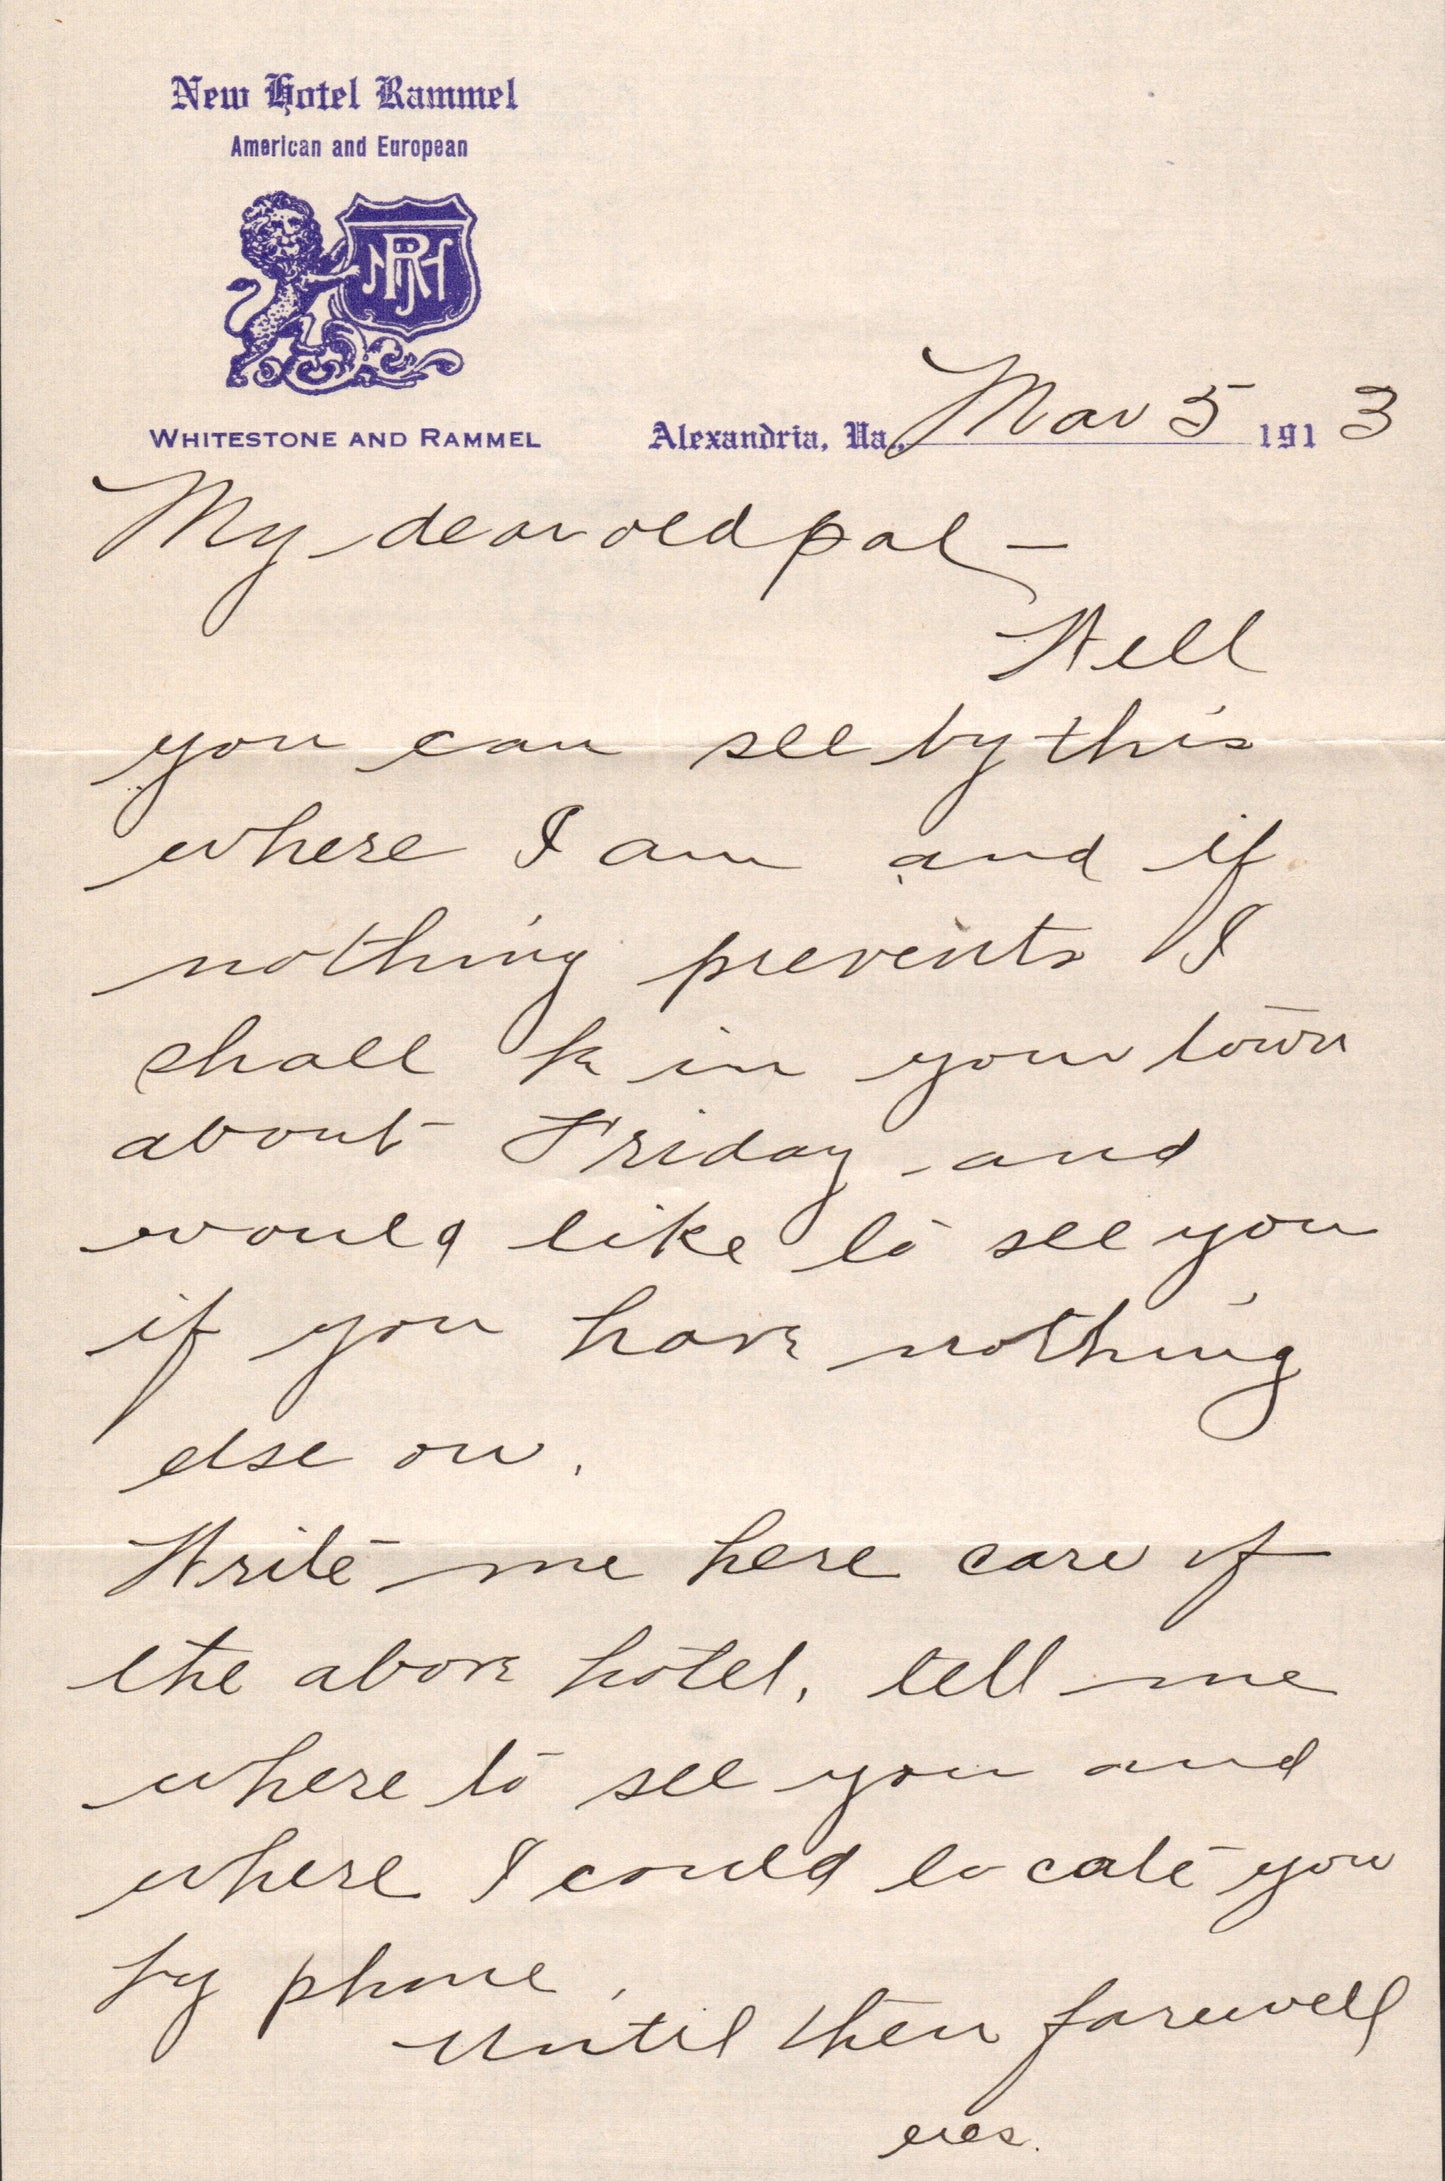 New Hotel Rammel
American and European
NRH
WHITESTONE AND RAMMEL
Alexandria, Va., Mar 5 1913
My dear old pal —
Well
you can see by this
where I am and if
nothing prevents I
shall be in your town
about Friday and
would like to see you
if you have nothing
else on.
Write me here care of
the above hotel, tell me
where to see you and
where I could locate you
by phone,
Until then farewell